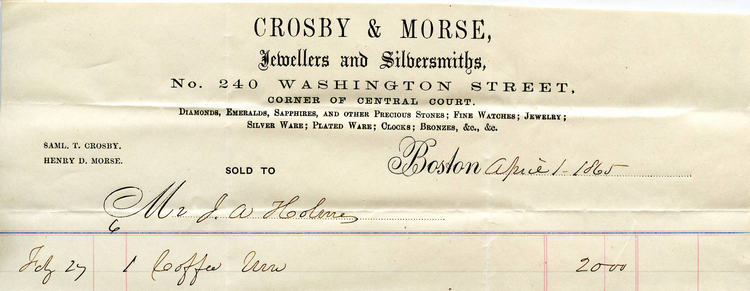 CROSBY & MORSE,
Jewellers and Silversmiths,
No. 240 WASHINGTON STREET,
CORNER OF CENTRAL COURT.
DIAMONDS, EMERALDS, SAPPHIRES, AND OTHER PRECIOUS STONES; FINE WATCHES; JEWELRY;
SILVER WARE; PLATED WARE; CLOCKS; BRONZES, &c., &c.
SAML. T. CROSBY.
HENRY D. MORSE.
SOLD TO
Boston April 1 - 1865
Mr J. A Holmes
6
Feby 27 1 Coffee Urn 20 00